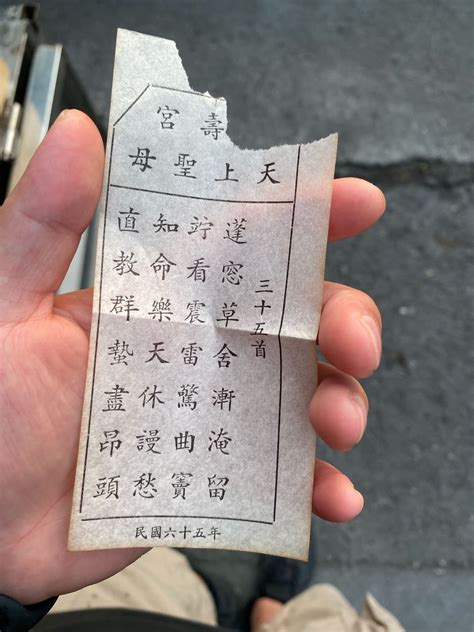 壽宮
天上聖母
三十五首
蓬窓草舍漸淹留
竚看震雷驚曲竇
知命樂天休謾愁
直教群蟄盡昂頭
民國六十五年